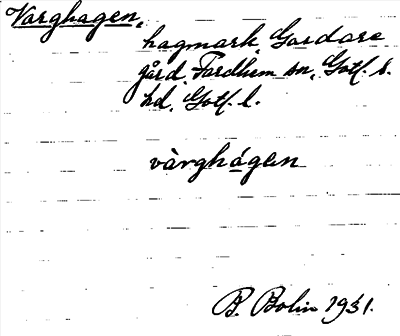 Varghagen,
hagmark, Gardare
gård, Fardhem sn, Gotl. s.
hd, Gotl. l.
vàrghágen
B. Bolin 1931.